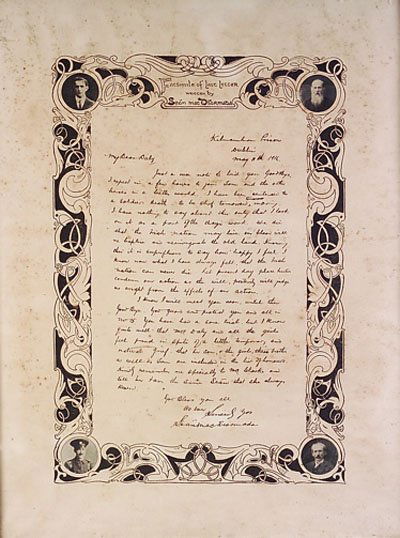 Facsimile of Last Letter
written by
Seán mac Diarmada
Kilmainham Prison
Dublin
May 11th 1916.
My Dear Daly,
Just a wee note to bid you Good bye.
I expect in a few hours to join Tom and the other
heroes in a better world. I have been sentenced to
a soldiers death – to be shot tomorrow morning.
I have nothing to say about this only that I look
on it as a part of the days work. We die
that the Irish nation may live. Our blood will
re baptise and reinvigorate the old land. Knowing
this it is superfluous to say how happy I feel. I
know now what I have always felt – that the Irish
nation can never die. Let present day place hunters
condemn our action as they will, posterity will judge
us aright from the effects of our action.
I know I will meet you soon, until then
Good Bye. God guard and protect you and all in
no 15. You have had a sore trial but I know
quite well that Mrs Daly and all the girls
feel proud in spite of a little temporary and
natural grief that her son & the girls, their brother
as well as Tom are included in the list of honours.
Kindly remember me specially to Mrs Clarke and
tell her I am the same Seán that she always
knew.
God Bless you all
As ever Sincerely Yours
Seán mac Diarmada